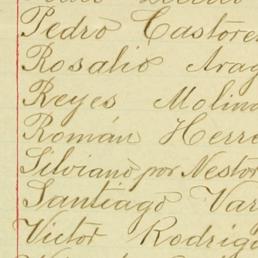 Pedro Castore
Rosalio Arag
Reyes Molina
Román Herre
Silviano por Nestor
Santiago Var
Victor Rodrig